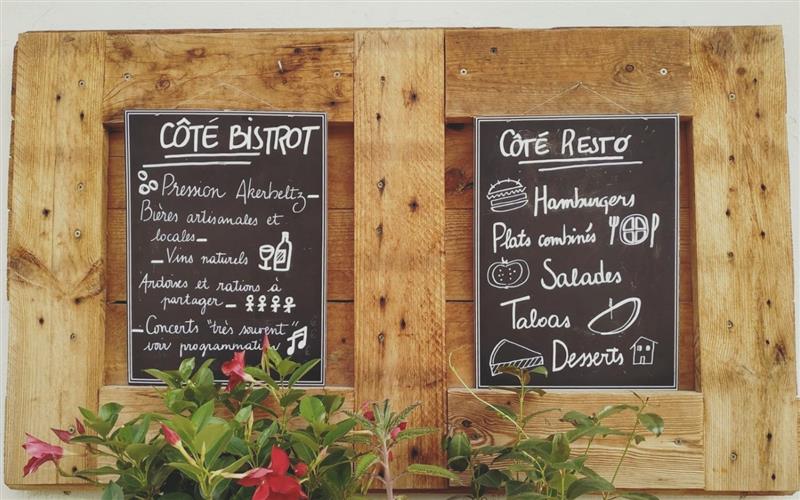 CÔTÉ BISTROT
Pression Akerbeltz
Bières artisanales et
locales
Vins naturels
Ardoises et rations à
partager
Concerts "très souvent"
voir programmation
CÔTÉ RESTO
Hamburgers
Plats combinés
Salades
Taloas
Desserts